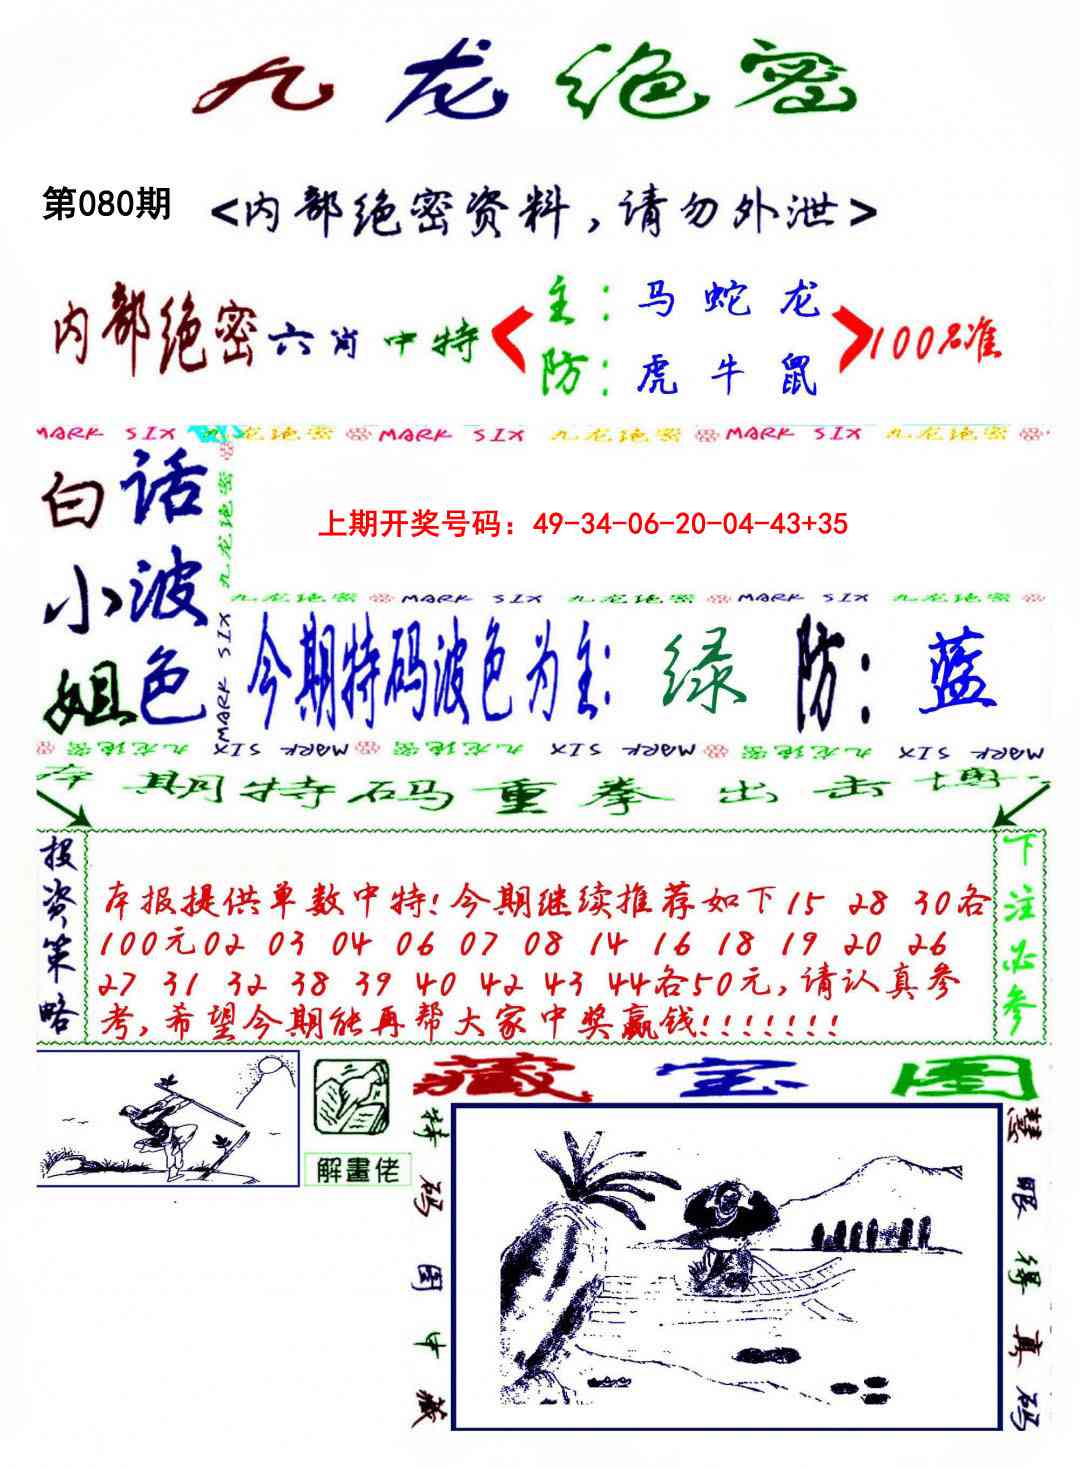 九龙绝密
第080期 <内部绝密资料,请勿外泄>
内部绝密六肖中特 < 主:马 蛇 龙
防:虎 牛 鼠 > 100%准
MARK SIX 九龙绝密 MARK SIX 九龙绝密 MARK SIX 九龙绝密
白话
小波
姐色
九龙绝密 MARK SIX
上期开奖号码: 49-34-06-20-04-43+35
九龙绝密 MARK SIX 九龙绝密 MARK SIX 九龙绝密
今期特码波色为主: 绿 防: 蓝
九龙绝密 MARK SIX 九龙绝密 MARK SIX 九龙绝密 MARK SIX
本期特码重拳出击博
投资策略
本报提供单数中特!今期继续推荐如下15 28 30各
100元02 03 04 06 07 08 14 16 18 19 20 26
27 31 32 38 39 40 42 43 44各50元,请认真参
考,希望今期能再帮大家中奖赢钱!!!!!!!
下注必参
解畫佬
藏宝图
特码图中藏
慧眼得真码